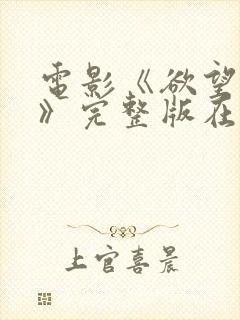 電影《欲望
》完整版在
上官喜晨